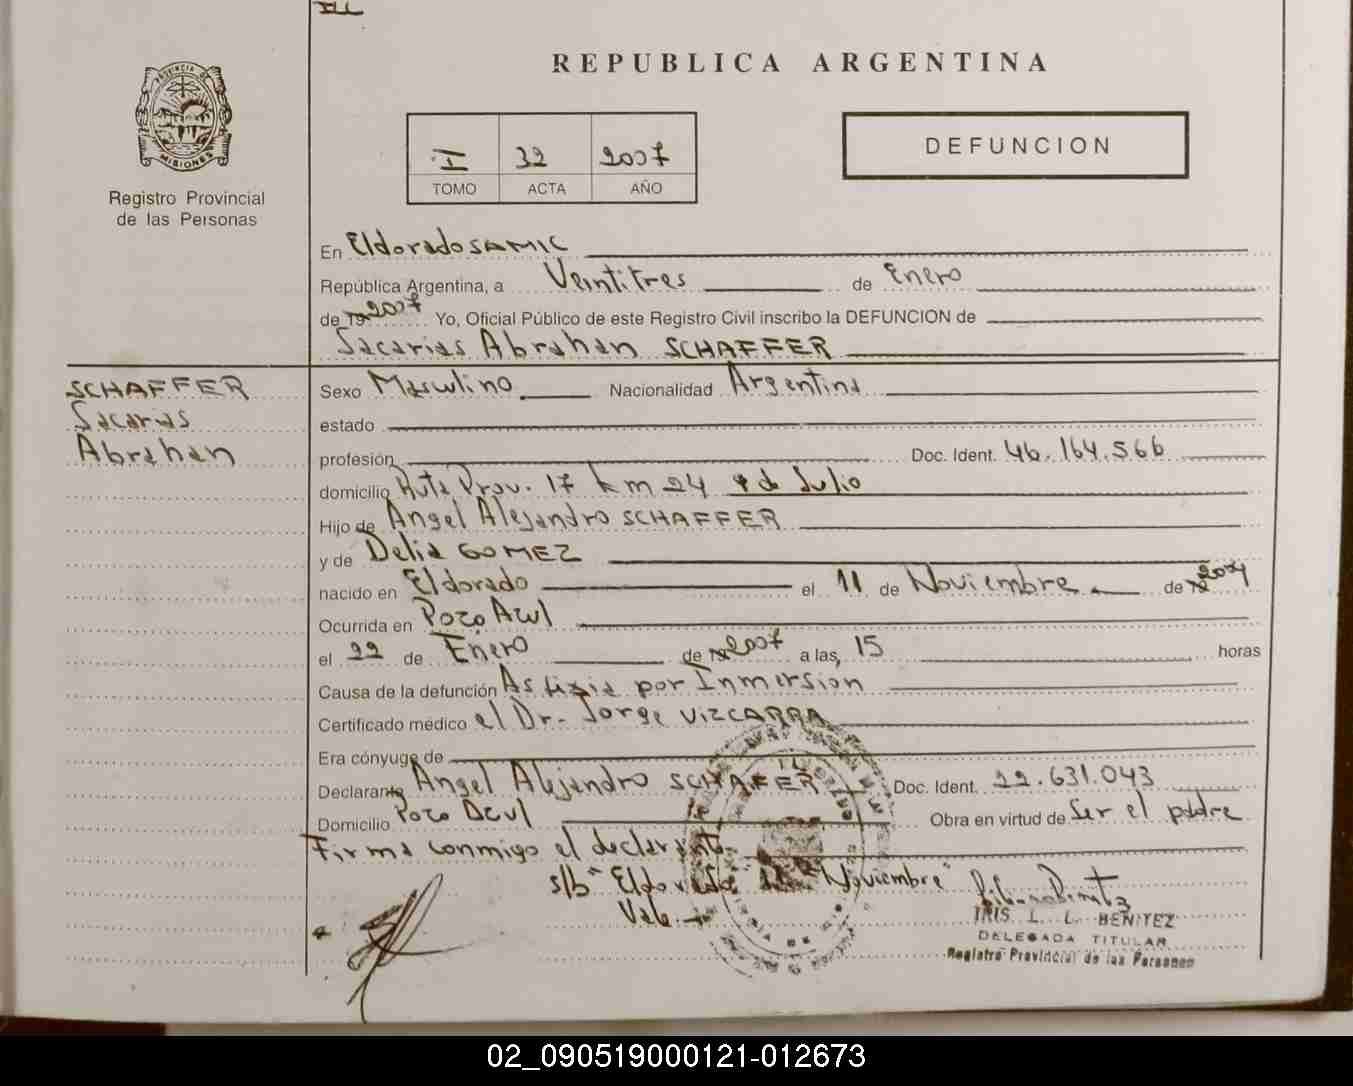 III
REPUBLICA ARGENTINA
PROVINCIA DE
MISIONES
Registro Provincial
de las Personas
I 32 2007
TOMO ACTA AÑO
DEFUNCION
En Eldorado SAMIC
República Argentina, a Veintitres de Enero
de 19 2007 Yo, Oficial Público de este Registro Civil inscribo la DEFUNCION de
Sacarias Abrahan SCHAFFER
SCHAFFER
Sacarias
Abrahan
Sexo Masculino Nacionalidad Argentina
estado
profesión Doc. Ident. 46.164.566
domicilio Ruta Prov. 17 km 24 9 de Julio
Hijo de Angel Alejandro SCHAFFER
y de Delia GOMEZ
nacido en Eldorado el 11 de Noviembre de 19 2004
Ocurrida en Pozo Azul
el 22 de Enero de 19 2007 a las, 15 horas
Causa de la defunción Asfixia por Inmersion
Certificado médico el Dr. Jorge VIZCARRA
Era cónyuge de
Declarante Angel Alejandro SCHAFFER Doc. Ident. 22.631.043
Domicilio Pozo Azul Obra en virtud de Ser el padre
Firma conmigo el declarante
s/b "Eldorado 11 Noviembre"
Vale
IRIS L. L. BENITEZ
DELEGADA TITULAR
Registro Provincial de las Personas
02_090519000121-012673